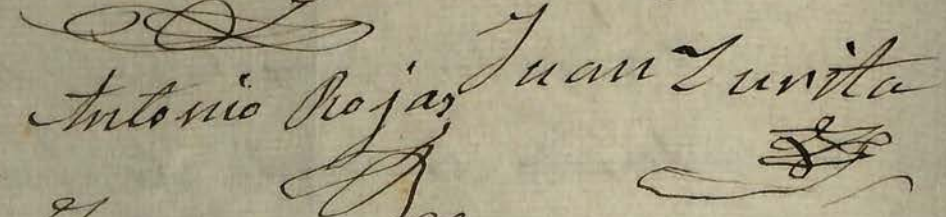 Antonio Rojas
Juan Zurita